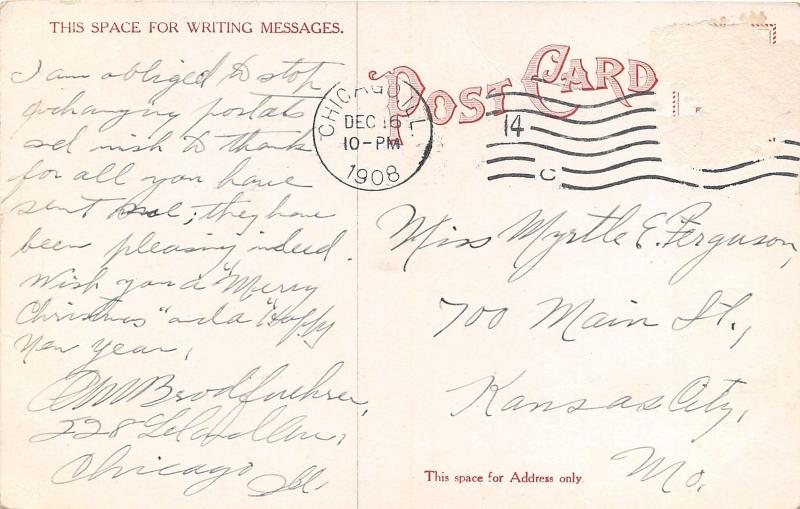 THIS SPACE FOR WRITING MESSAGES.
I am obliged to stop
exchanging postals
wish to thank
for all you have
sent me; they have
been pleasing indeed.
Wish you a "Merry
Christmas" and a "Happy
New Year,
Brodfuehrer,
228 Leland Ave,
Chicago Ill.
POST CARD
CHICAGO, ILL.
DEC 16
10-PM
1908
14
C
Miss Myrtle E. Ferguson,
700 Main St.,
Kansas City,
Mo.
This space for Address only.